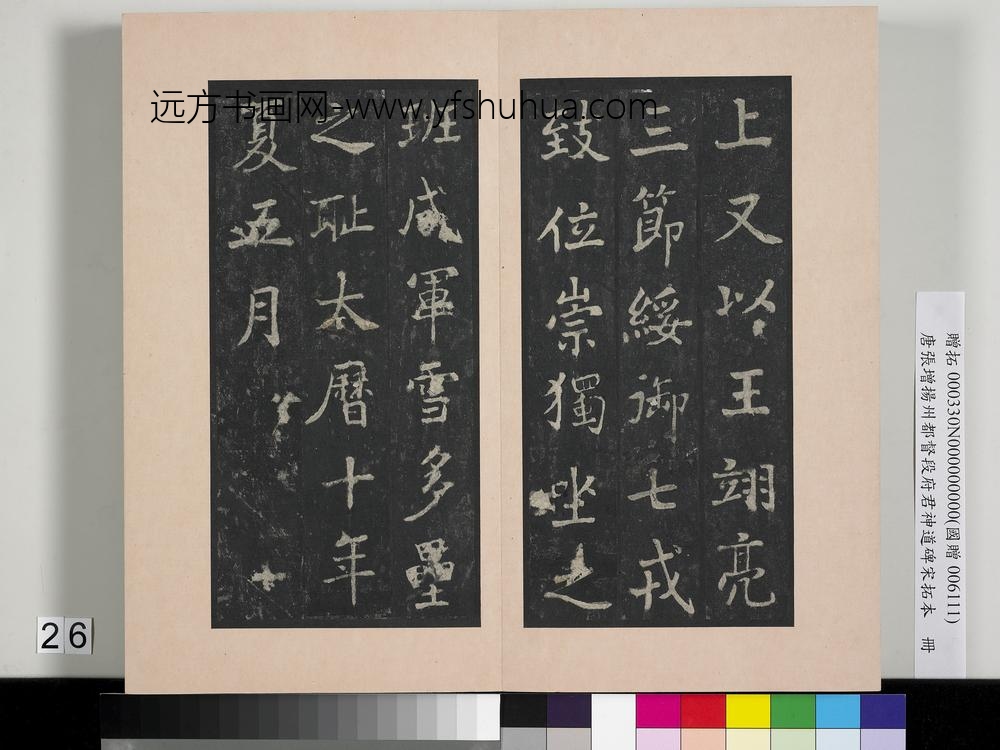 远方书画网-www.yfshuhua.com
上又以王翊亮
三節綏御七戎
致位崇獨坐之
班咸軍雪多壘
之耻太曆十年
夏五月
贈拓 000330N000000000(國贈 006111)
唐張增揚州都督段府君神道碑宋拓本 冊
26